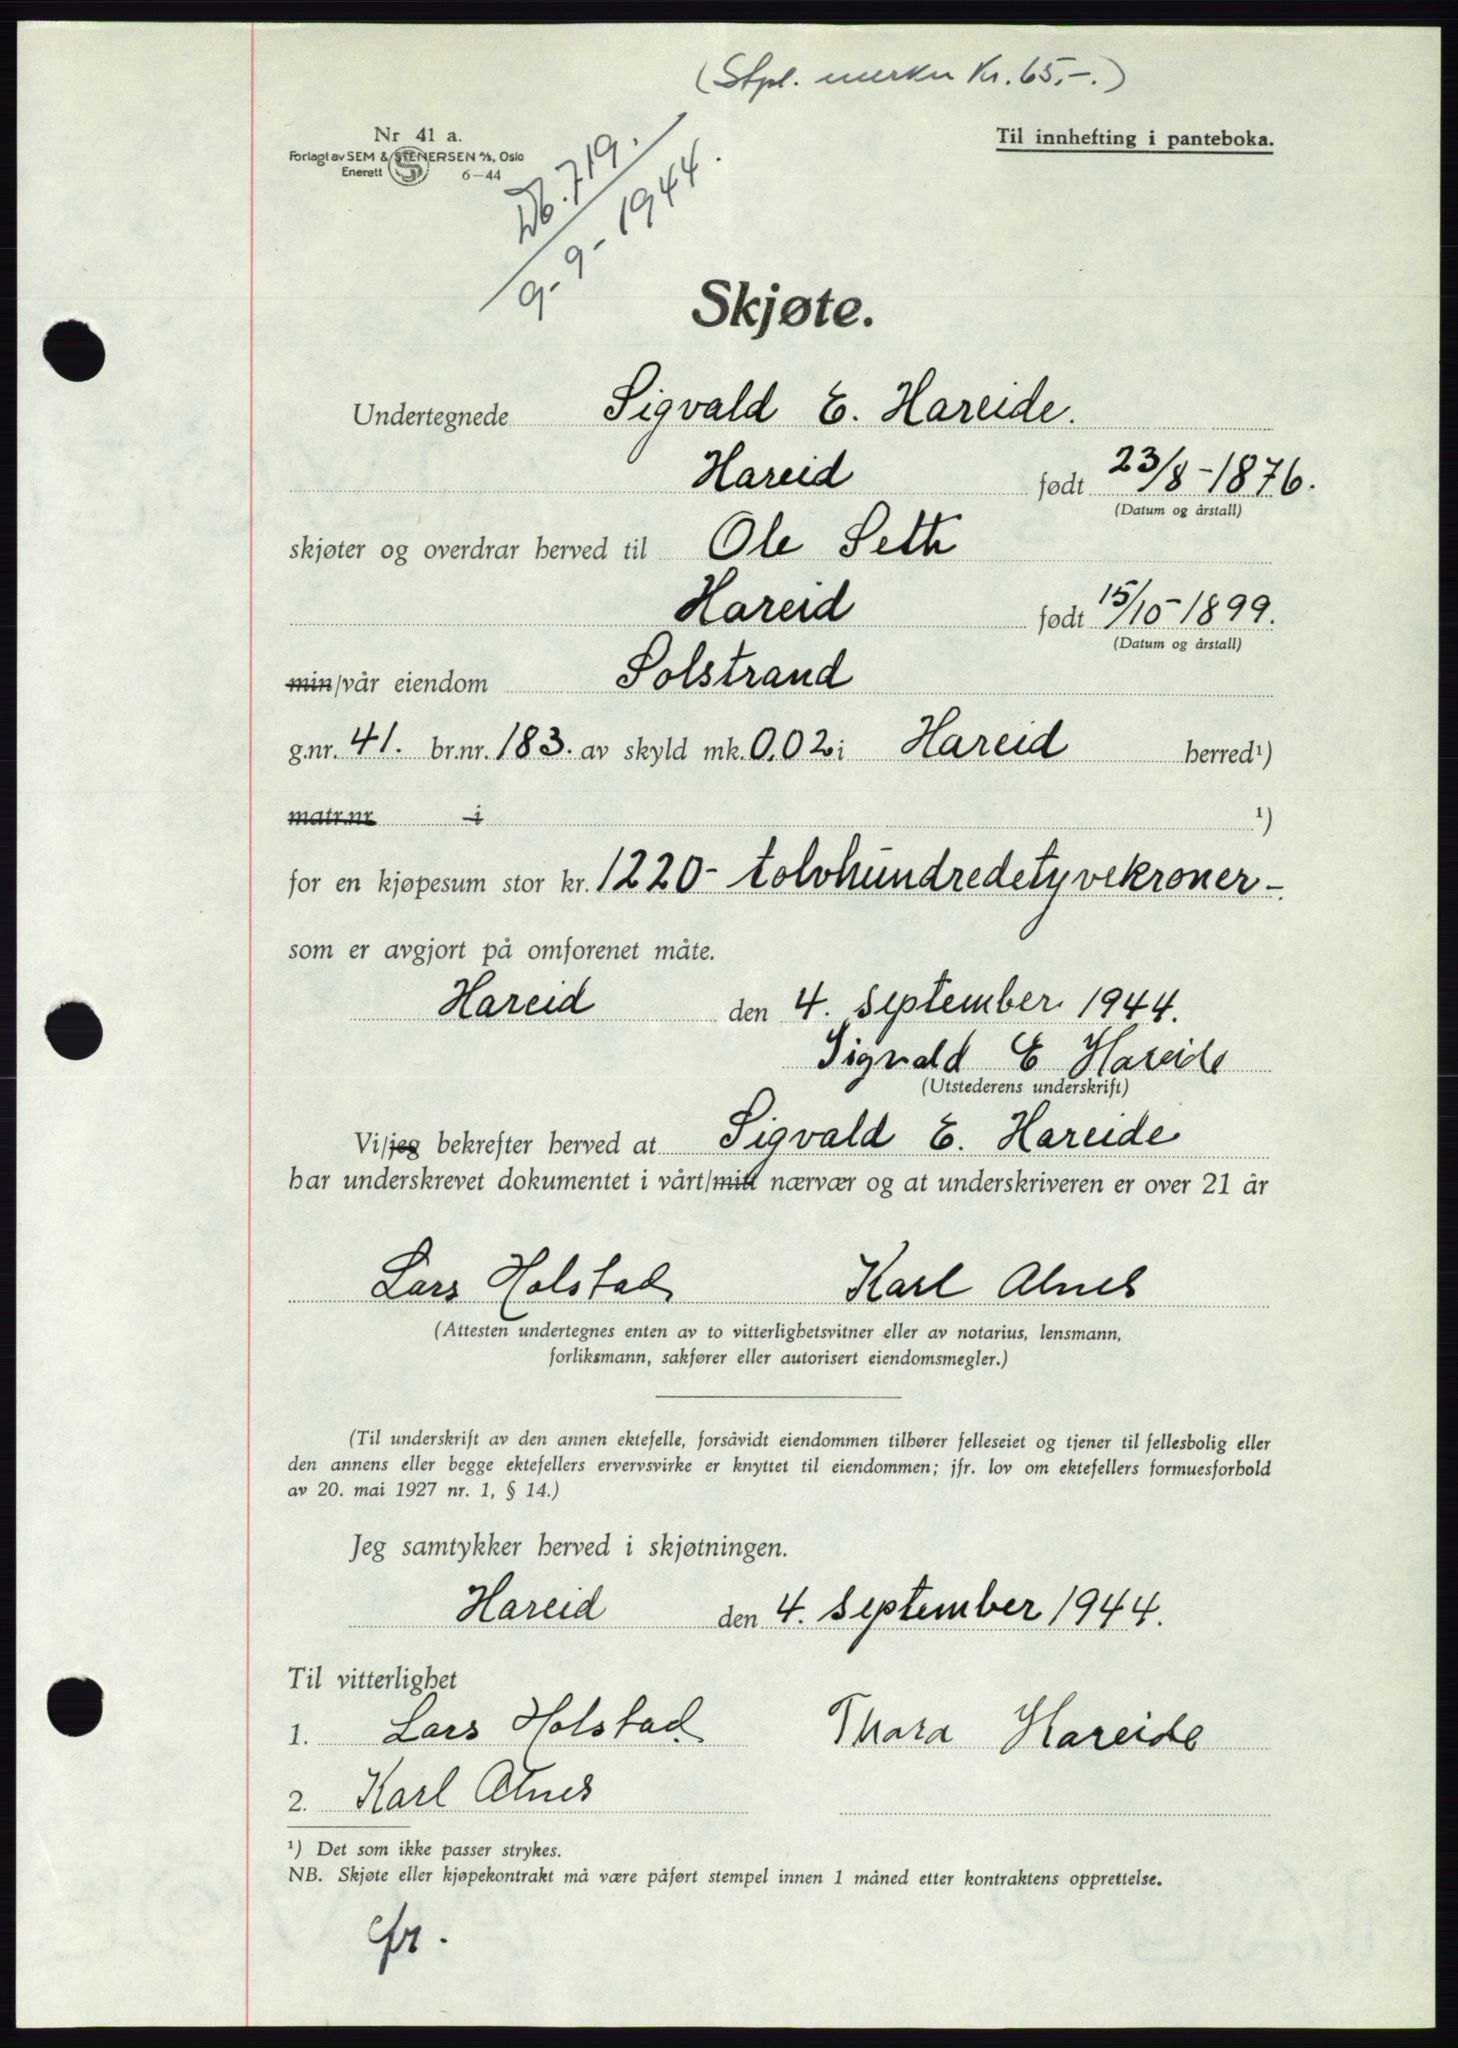 (Stpl. merker Kr. 65,-.)
Nr 41 a.
Forlagt av SEM & STENERSEN A/S, Oslo
Enerett 6-44
Til innhefting i panteboka.
Db. 719.
9-9-1944.
Skjøte.
Undertegnede Sigvald E. Hareide.
Hareid født 23/8-1876.
(Datum og årstall)
skjøter og overdrar herved til Ole Seth
Hareid født 15/10-1899.
(Datum og årstall)
min/vår eiendom Solstrand
g.nr. 41. br.nr. 183. av skyld mk. 0,02 i Hareid herred¹)
matr.nr i ¹)
for en kjøpesum stor kr. 1220- tolvhundredetyvekroner-.
som er avgjort på omforenet måte.
Hareid den 4. september 1944.
Sigvald E Hareide
(Utstederens underskrift)
Vi/jeg bekrefter herved at Sigvald E. Hareide
har underskrevet dokumentet i vårt/mitt nærvær og at underskriveren er over 21 år
Lars Holstad Karl Alnes
(Attesten undertegnes enten av to vitterlighetsvitner eller av notarius, lensmann,
forliksmann, sakfører eller autorisert eiendomsmegler.)
(Til underskrift av den annen ektefelle, forsåvidt eiendommen tilhører felleseiet og tjener til fellesbolig eller
den annens eller begge ektefellers ervervsvirke er knyttet til eiendommen; jfr. lov om ektefellers formuesforhold
av 20. mai 1927 nr. 1, § 14.)
Jeg samtykker herved i skjøtningen.
Hareid den 4. september 1944.
Til vitterlighet
1. Lars Holstad Thora Hareide
2. Karl Alnes
¹) Det som ikke passer strykes.
NB. Skjøte eller kjøpekontrakt må være påført stempel innen 1 måned etter kontraktens opprettelse.